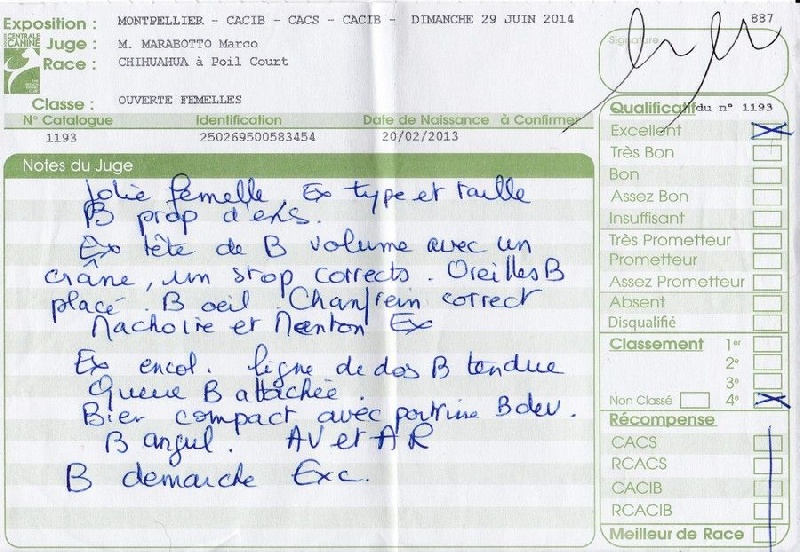 Exposition : MONTPELLIER - CACIB - CACS - CACIB - DIMANCHE 29 JUIN 2014
887
CENTRALE
CANINE
Juge : M. MARABOTTO Marco
Race : CHIHUAHUA à Poil Court
Signature
Classe : OUVERTE FEMELLES
N° Catalogue Identification Date de Naissance à Confirmer
1193 250269500583454 20/02/2013
Notes du Juge
Jolie femelle. Ex type et taille
B prop d'ens.
Ex tête de B volume avec un
crâne, un stop corrects. Oreilles B
placé. B oeil. Chanfrein correct
Machoire et Menton Ex
Ex encol. ligne de dos B tendue
Queue B attachée.
Bien compact avec poitrine B dev.
B angul. AV et AR
B demarche Exc.
Qualificatif du n° 1193
Excellent
Très Bon
Bon
Assez Bon
Insuffisant
Très Prometteur
Prometteur
Assez Prometteur
Absent
Disqualifié
Classement 1er
2e
3e
Non Classé 4e
Récompense
CACS
RCACS
CACIB
RCACIB
Meilleur de Race